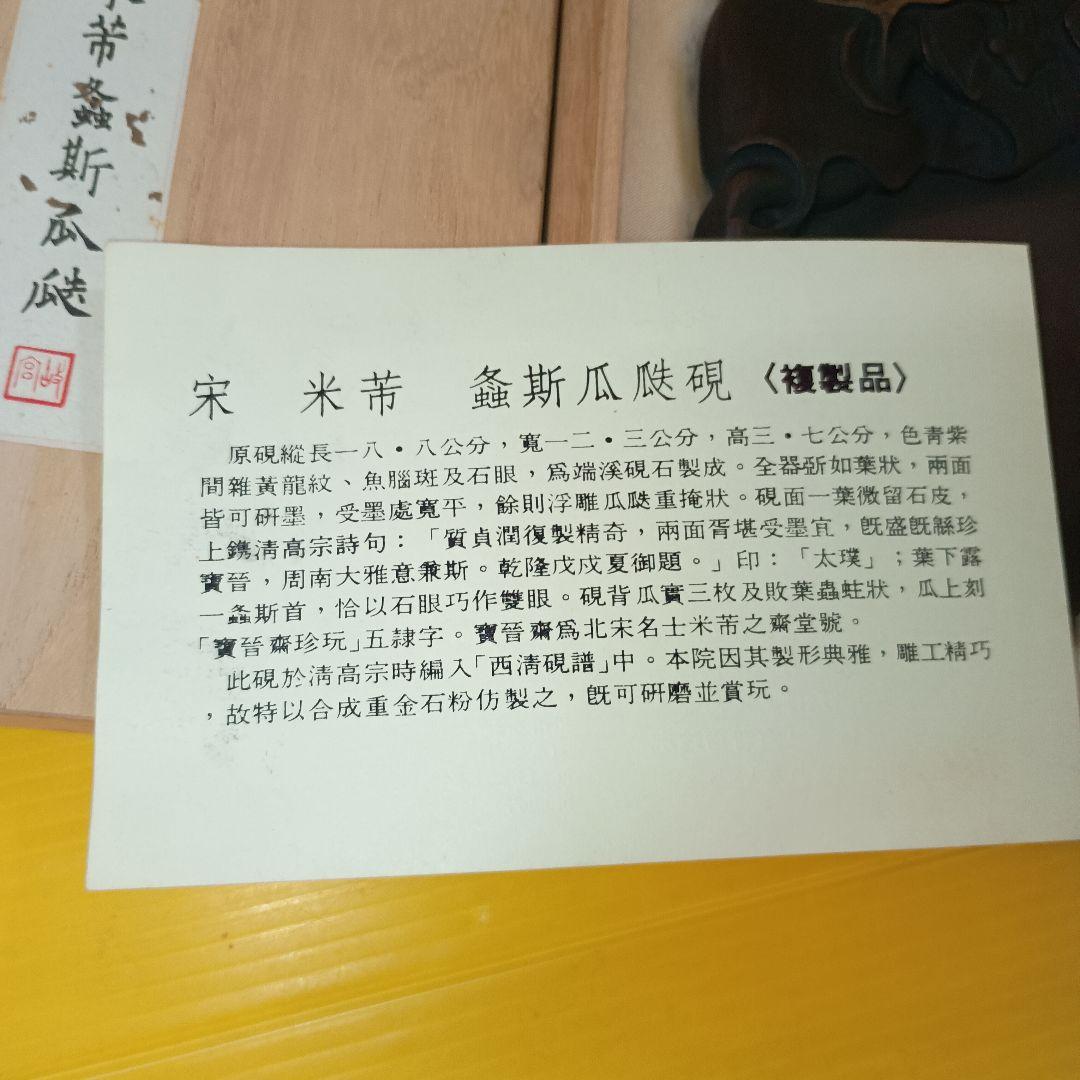 芾螽斯瓜瓞
故宮
宋　米芾　螽斯瓜瓞硯〈複製品〉
原硯縱長一八・八公分，寬一二・三公分，高三・七公分，色青紫
間雜黃龍紋、魚腦斑及石眼，爲端溪硯石製成。全器斲如葉狀，兩面
皆可研墨，受墨處寬平，餘則浮雕瓜瓞重掩狀。硯面一葉微留石皮，
上鐫淸高宗詩句：「質貞潤復製精奇，兩面胥堪受墨宜，旣盛旣緜珍
寶晉，周南大雅意兼斯。乾隆戊戌夏御題。」印：「太璞」；葉下露
一螽斯首，恰以石眼巧作雙眼。硯背瓜實三枚及敗葉蟲蛀狀，瓜上刻
「寶晉齋珍玩」五隷字。寶晉齋爲北宋名士米芾之齋堂號。
此硯於淸高宗時編入「西淸硯譜」中。本院因其製形典雅，雕工精巧
，故特以合成重金石粉仿製之，旣可研磨並賞玩。